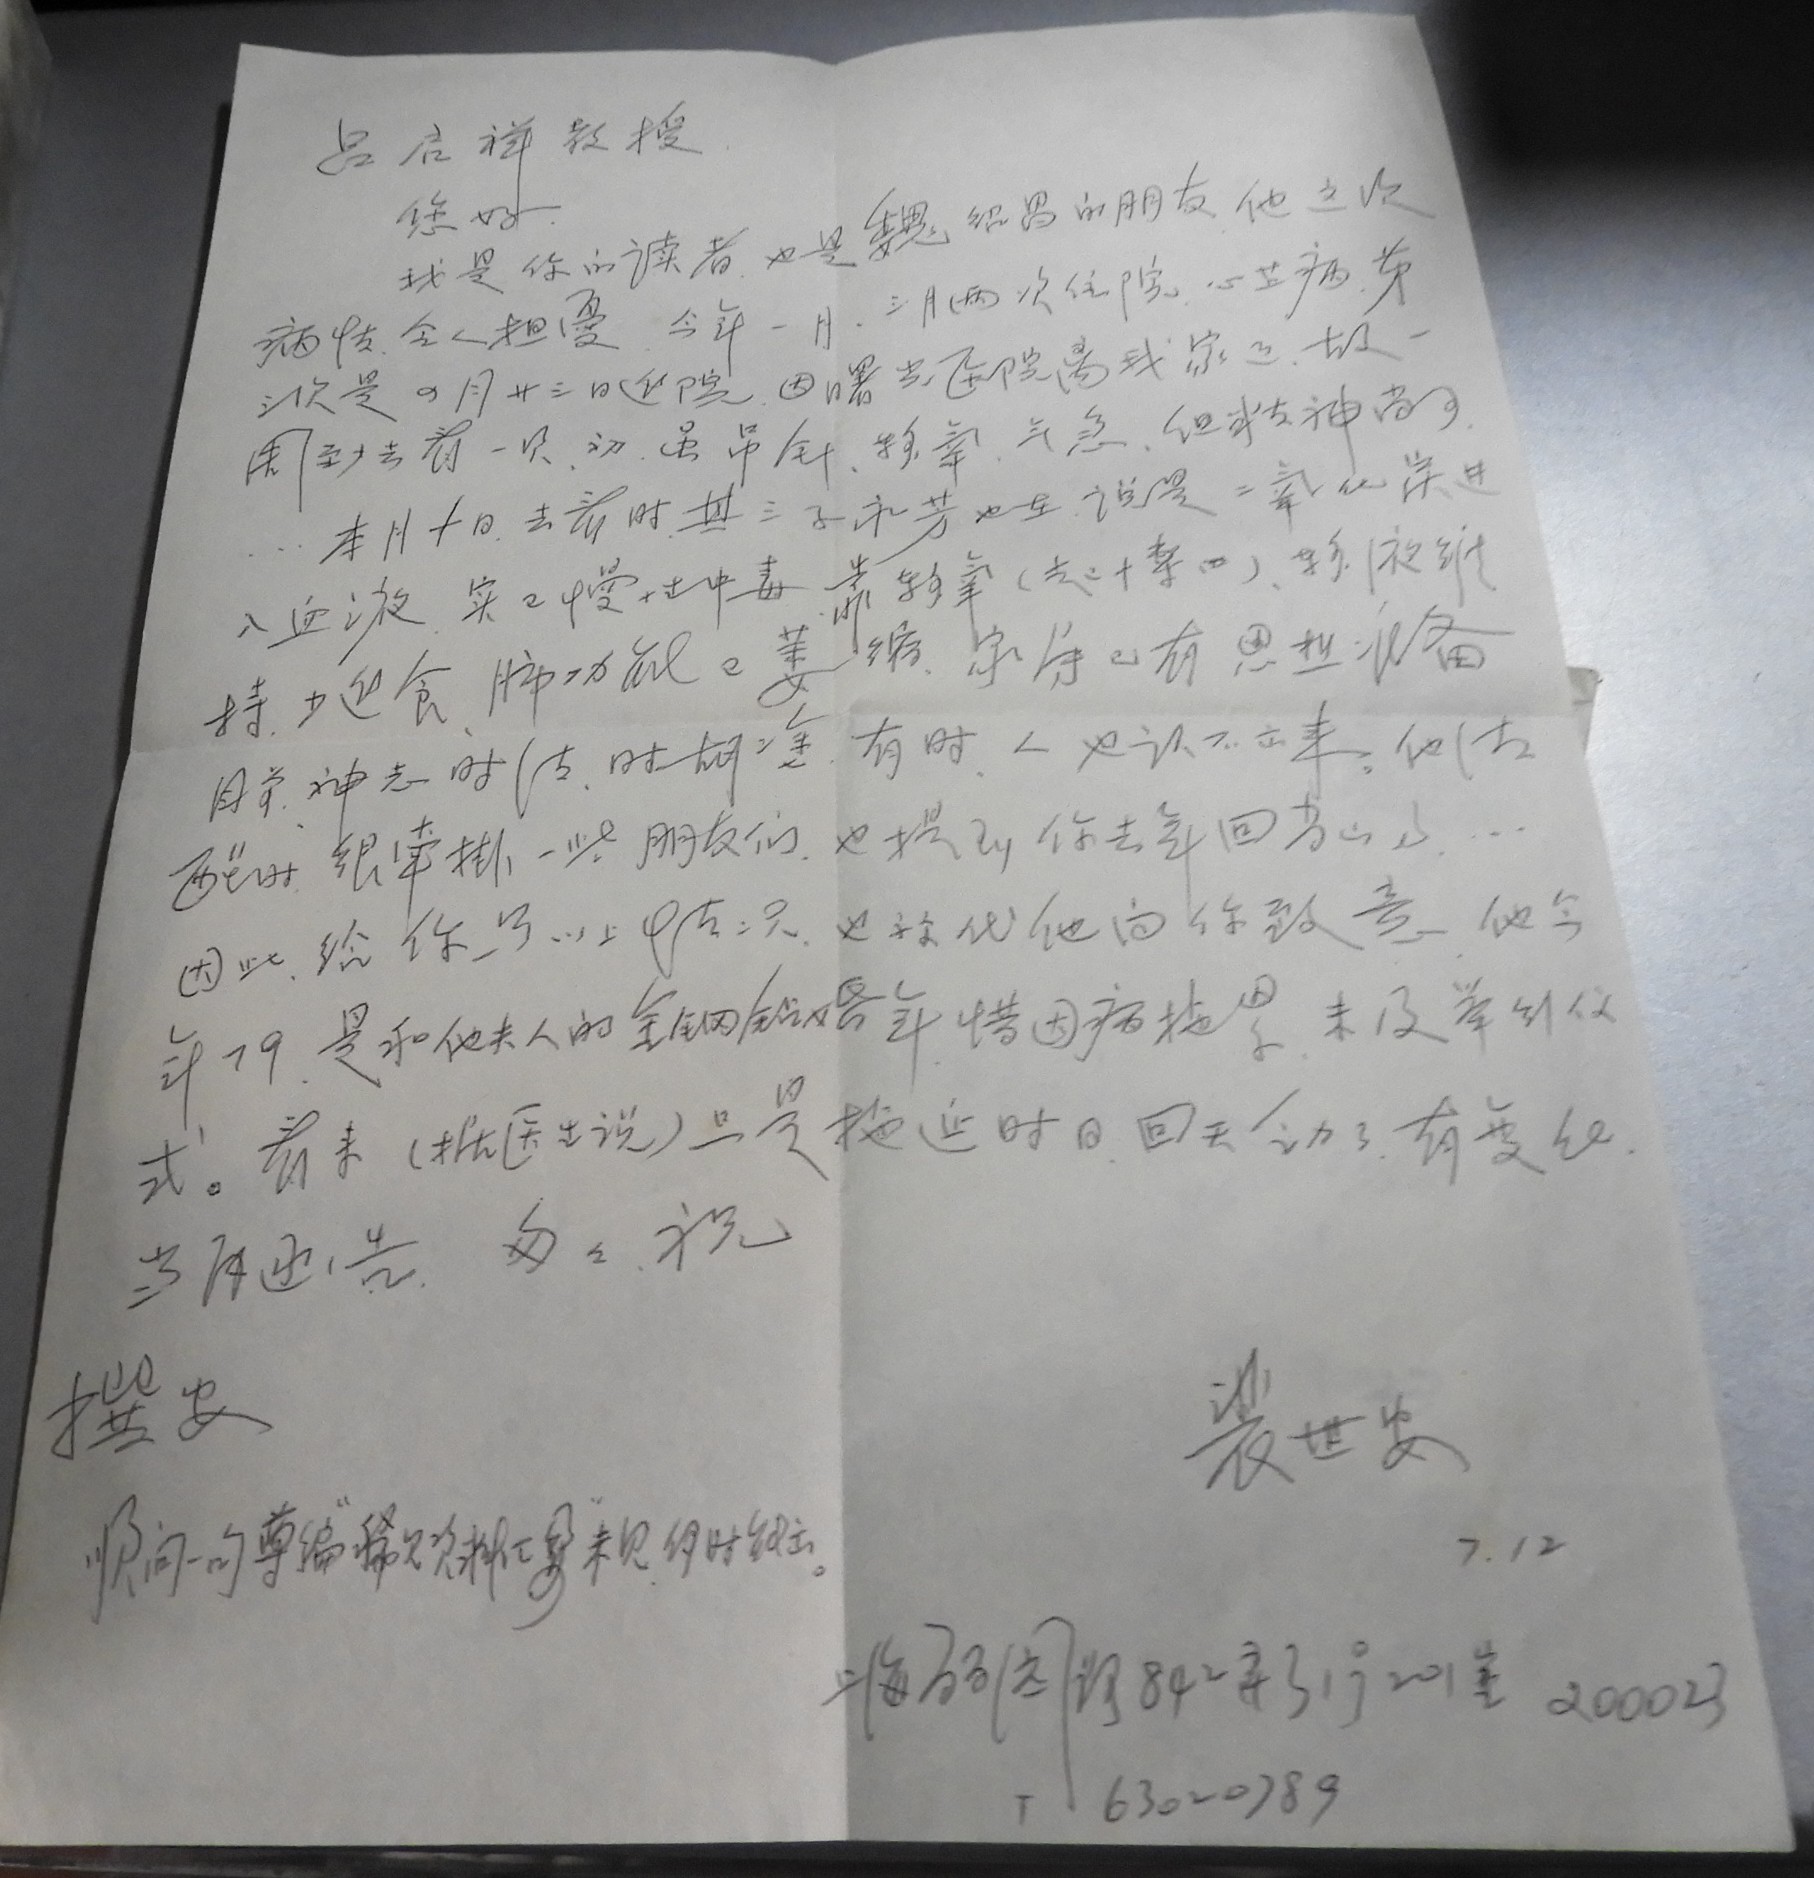 吕启祥教授
您好.
我是你的读者.也是魏绍昌的朋友.他这次
病情.令人担忧.今年一月.三月两次住院.心脏病.第
三次是四月廿三日进院.因曙光医院离我家近.故一
周至少去看一次.初.虽吊针、输氧.气急.但精神尚可.
…本月十日.去看时.其三子永芳也在.说是二氧化碳进
入血液.实已慢性中毒.靠输氧()、输液维
持.少进食、肺功能已萎缩、家属已有思想准备
目前.神志时清.时糊涂.有时.人也认不出来。他清
醒时.很牵掛一些朋友们.也提到你去年回
因此.给你写以上情况.也算代他向你致意.他今
年79.是和他夫人的金钢钻婚年.惜因病拖累.未及举行仪
式。看来(据医生说)只是拖延时日.回天乏力了.有变化.
当再函告.匆匆.祝
撰安
裴世安
7.12
顺问一句尊编"稀见资料汇要"未见.何时能出。
上海局门路842弄31号201室 200023
T 63020789